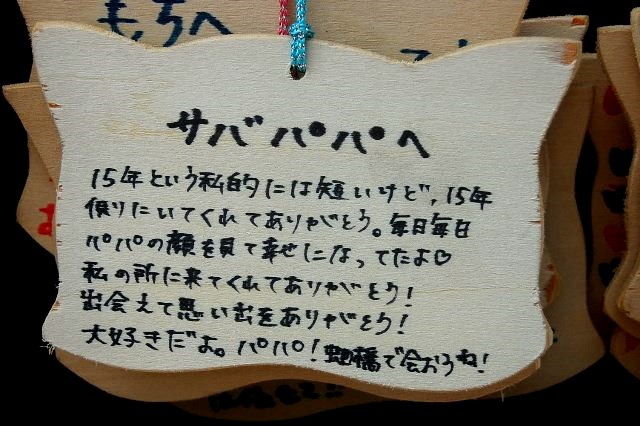 もちへ
サバパパへ
15年という私的には短いけど、15年
側りにいてくれてありがとう。毎日毎日
パパの顔を見て幸せになってたよ♡
私の所に来てくれてありがとう!
出会えて思い出をありがとう!
大好きだよ。パパ!虹橋で会おうね!